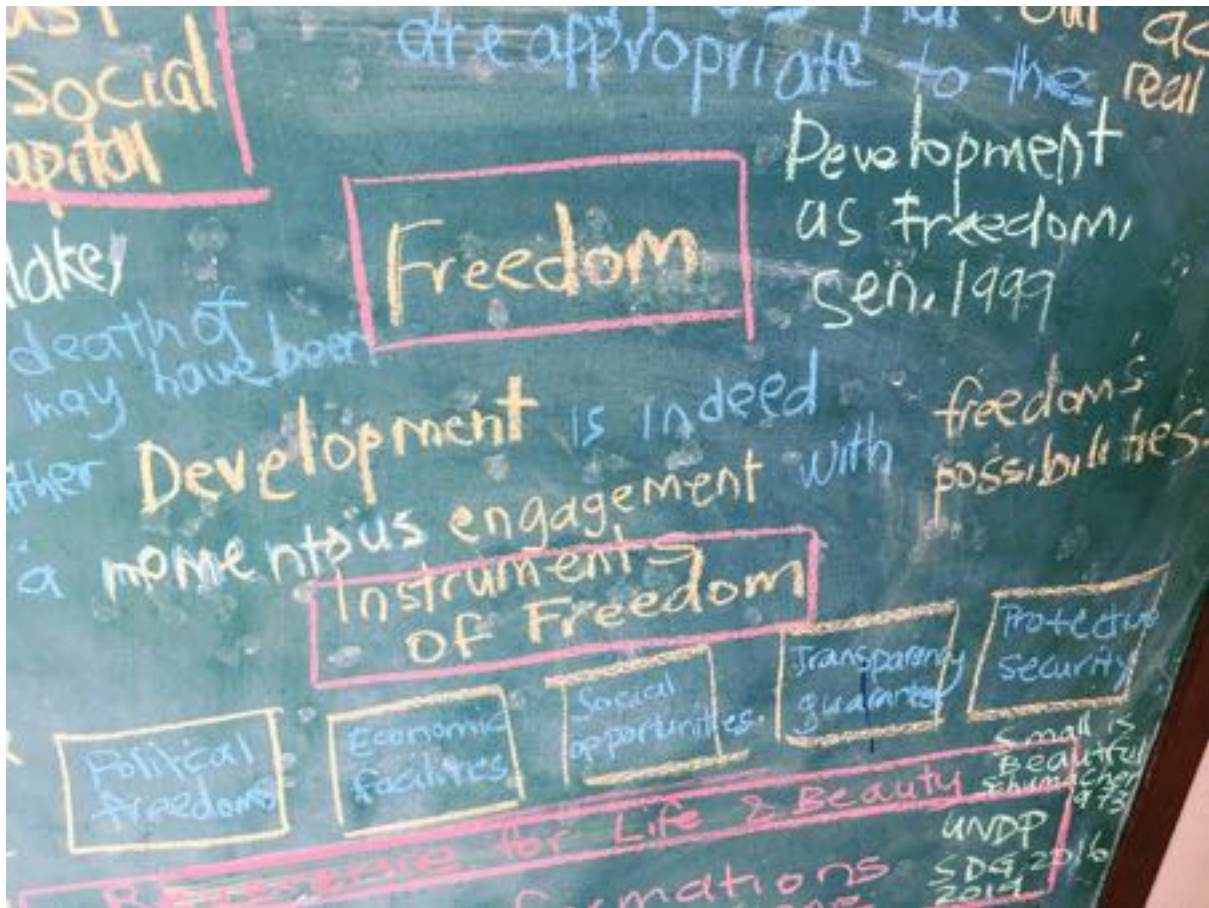 social
capital
are appropriate to the real
Development
as freedom,
Sen, 1999
Freedom
death of
may have been
Development is indeed
a momentous engagement with freedom's
possibilities.
Instruments
of Freedom
Political
freedoms
Economic
facilities
Social
opportunities.
Transparency
guarantee
Protective
security
Small is
Beautiful
Schumacher
1973
for Life & Beauty
UNDP
SDG, 2016
2019